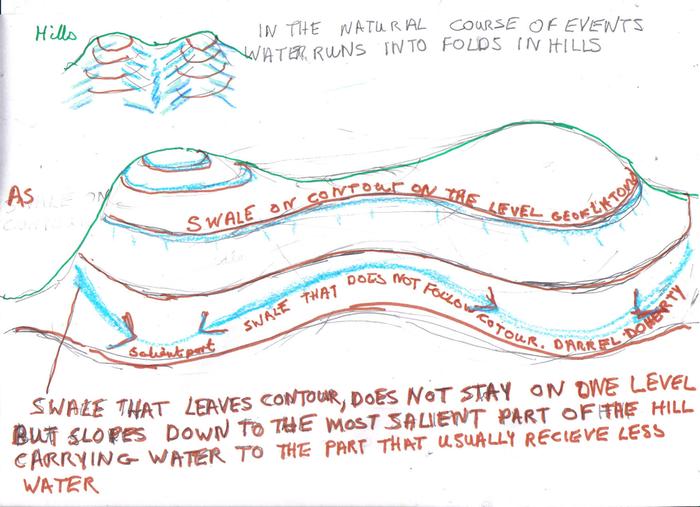 Hills
IN THE NATURAL COURSE OF EVENTS
WATER RUNS INTO FOLDS IN HILLS
AS
SWALE ON CONTOUR ON THE LEVEL GEOFF LAWTON
SWALE THAT DOES NOT FOLLOW COTOUR. DARREL DOHERTY
Salient part
SWALE THAT LEAVES CONTOUR, DOES NOT STAY ON ONE LEVEL
BUT SLOPES DOWN TO THE MOST SALIENT PART OF THE HILL
CARRYING WATER TO THE PART THAT USUALLY RECIEVE LESS
WATER